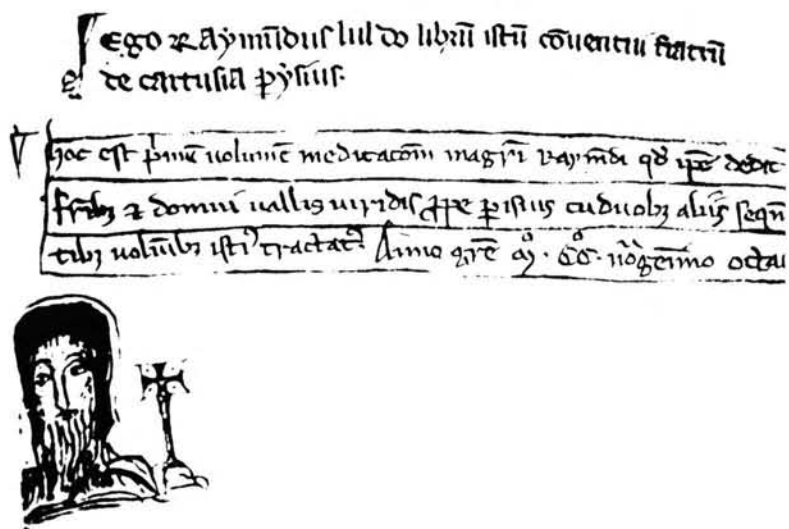 Ego Raymūdus lul do librū istū cōuentiu fratrū
de cartusia pysius.
hoc est pimū uolumē meditacōm magri raymdi qd ipe dedit
frībz & domui uallis uiridis ppe pisius cū duobz aliis sequn
tibz uolūībz isti tractat. Anno gre m. cc. nogenīmo octau